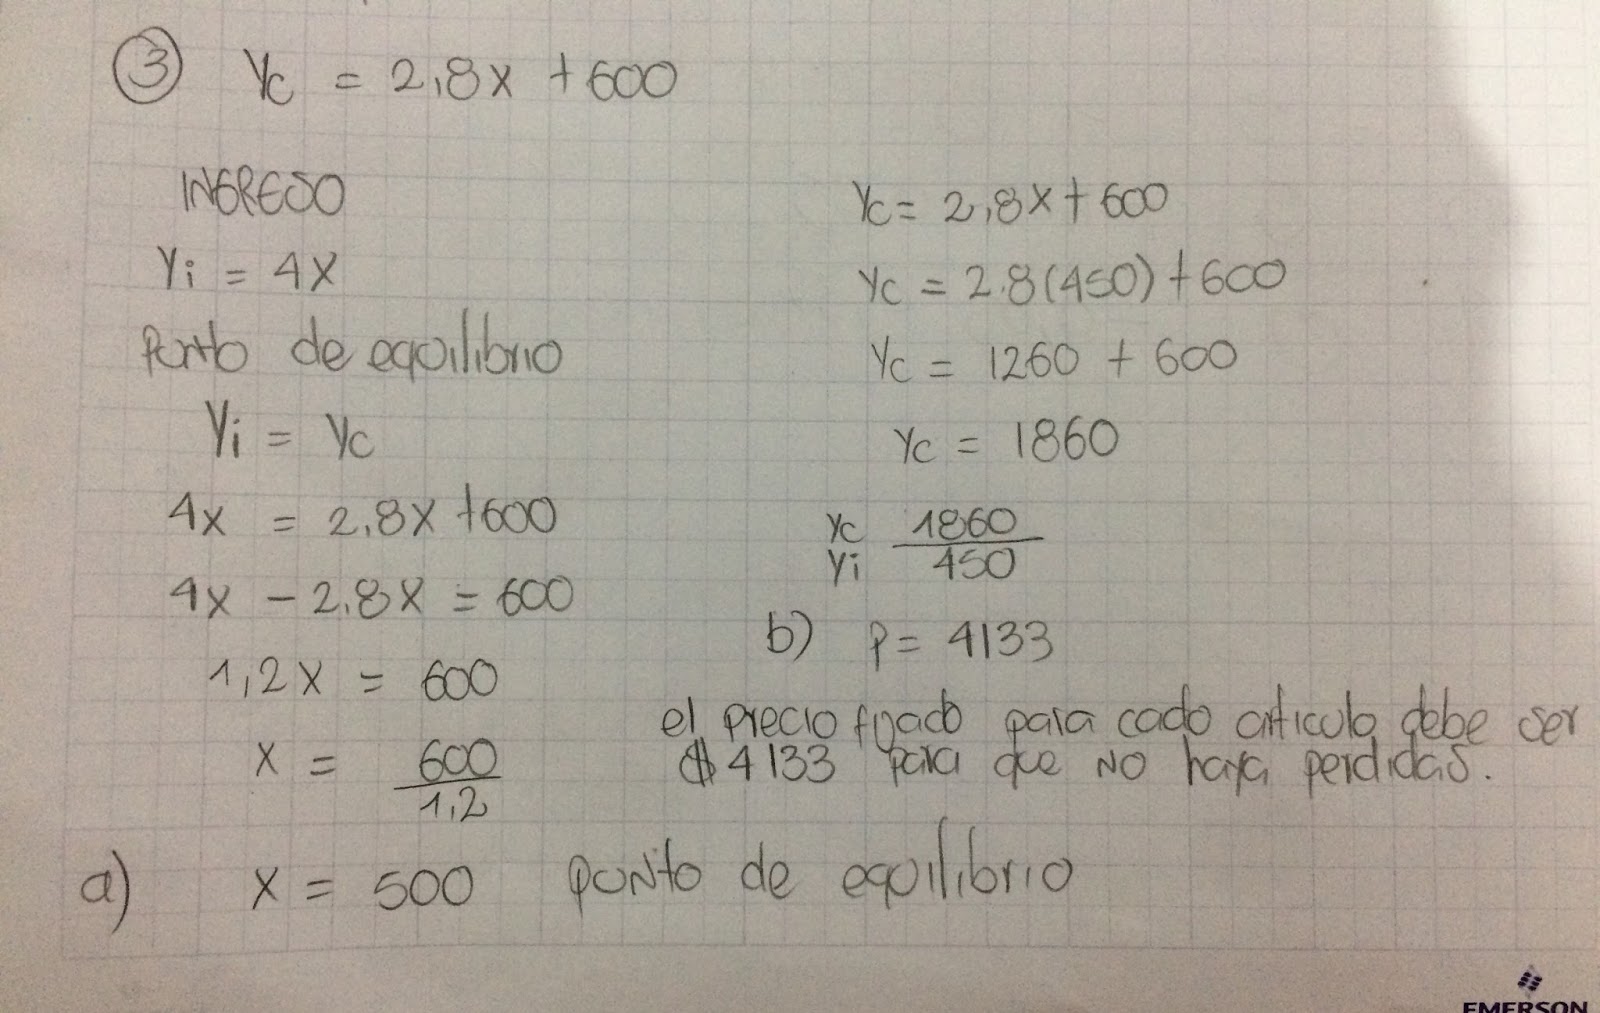 ③ Yc = 2,8x + 600
INGRESO
Yi = 4X
Punto de equilibrio
Yi = Yc
4x = 2,8x + 600
4x - 2,8x = 600
1,2x = 600
x = 600
1,2
a) x = 500 punto de equilibrio
Yc = 2,8x + 600
Yc = 2.8(450) + 600
Yc = 1260 + 600
Yc = 1860
Yc 1860
Yi 450
b) P = 4133
el precio fijado para cado articulo debe ser
$4133 para que NO haya perdidas.
EMERSON